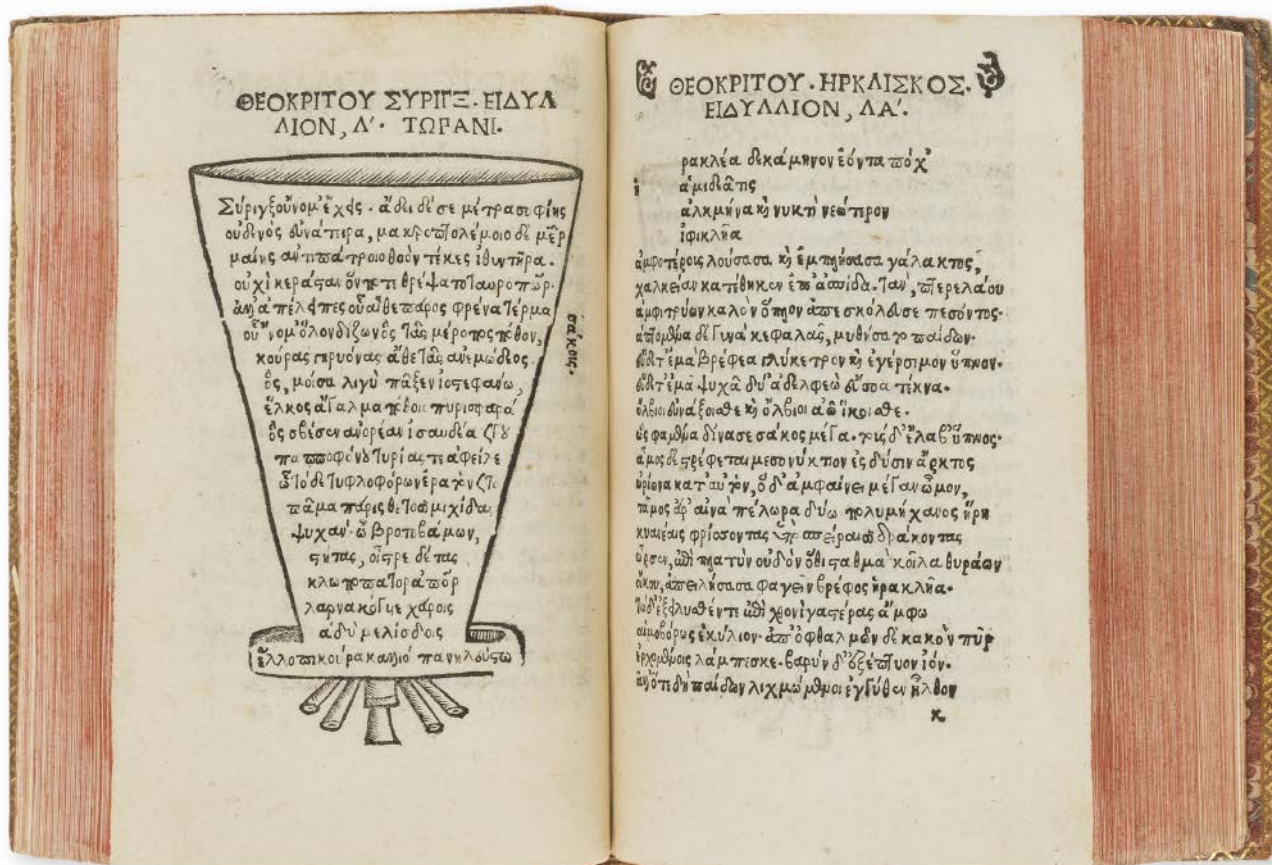 ΘΕΟΚΡΙΤΟΥ ΣΥΡΙΓΞ. ΕΙΔΥΛ
ΛΙΟΝ, Λ'. ΤΩΡΑΝΙ.
Σύριγξ οὔνομ' ἔχεις. ἄδει δέ σε μέτρα σοφίης
οὐδενὸς εὐνάτειρα, μακροπτολέμοιο δὲ μᾶτηρ
μαίης ἀντιπάτροιο θοὸν τέκες ἰθυντῆρα.
οὐχὶ κεράσταν ὅν ποτε θρέψατο ταυροπάτωρ.
οὔνομ' ὅλον δίζωον
κούρας γηρυόνας ἅθε τᾶς ἀνεμώδεος.
ὃς, μοίσα λιγὺ πᾶξεν ἰοστεφάνω,
ἕλκος ἄγαλμα πόθοιο πυρισφαρά
ὃς σβέσεν ἀνορέαν ἰσαυδέα
παπποφόνου τυρίας τε ἀφείλε
ᾧ τόδε τυφλοφόρων ἐρατὸν
πᾶμα πάρις θέτο σιμιχίδα
ψυχάν. ὦ βροτοβάμων,
στήτας, οἶστρε δέτας
κλωποπάτορ ἀπάτορ
λαρνακόγυιε χάροις
ἁδὺ μελίσδοις
ἔλλοπι κούρα καλλιόπα νηλεύστω
σάκους.
ΘΕΟΚΡΙΤΟΥ. ΗΡΚΛΙΣΚΟΣ.
ΕΙΔΥΛΛΙΟΝ, ΛΑ'.
ρακλέα δεκάμηνον ἐόντα πόχ'
ἁ μιδεᾶτις
ἀλκμήνα καὶ νυκτὶ νεώτερον
ἰφικλῆα
ἀμφοτέροις λούσασα καὶ ἐμπλήσασα γάλακτος,
χαλκείαν κατέθηκεν ἐπ' ἀσπίδα. τὰν, πτερελάου
ἀμφιτρύων καλὸν ὅπλον ἀπεσκύλευσε πεσόντος.
ἁπτομένα δὲ γυνὰ κεφαλᾶς, μυθήσατο παίδων.
εὕδετ' ἐμὰ βρέφεα γλυκερὸν καὶ ἐγέρσιμον ὕπνον.
εὕδετ' ἐμὰ ψυχὰ δύ' ἀδελφεὼ εὔσοα τέκνα.
ὄλβιοι εὐνάζοισθε καὶ ὄλβιοι ἀῶ ἵκοισθε.
ὣς φαμένα δίνασε σάκος μέγα. τοὺς δ' ἔλαβ' ὕπνος.
ἆμος δὲ στρέφεται μεσονύκτιον ἐς δύσιν ἄρκτος
ὠρίωνα κατ' αὐτὸν, ὁ δ' ἀμφαίνει μέγαν ὦμον,
τᾶμος ἄρ' αἰνὰ πέλωρα δύω πολυμήχανος ἥρη
κυανέαις φρίσσοντας ὑπὸ σπείραισι δράκοντας
ὦρσεν, ἐπὶ πλατὺν οὐδὸν ὅθι σταθμὰ κοῖλα θυράων
οἴκου, ἀπειλήσασα φαγεῖν βρέφος ἡρακλῆα.
τὼ δ' ἐξειλυσθέντε ἐπὶ χθονὶ γαστέρας ἄμφω
αἱμοβόρως ἐκύλιον. ἀπ' ὀφθαλμῶν δὲ κακὸν πῦρ
ἐρχομένοις λάμπεσκε. βαρὺν δ' ἐξέπτυον ἰόν.
ἀλλ' ὅτε δὴ παίδων λιχμώμενοι ἐγγύθεν ἦλθον
κ